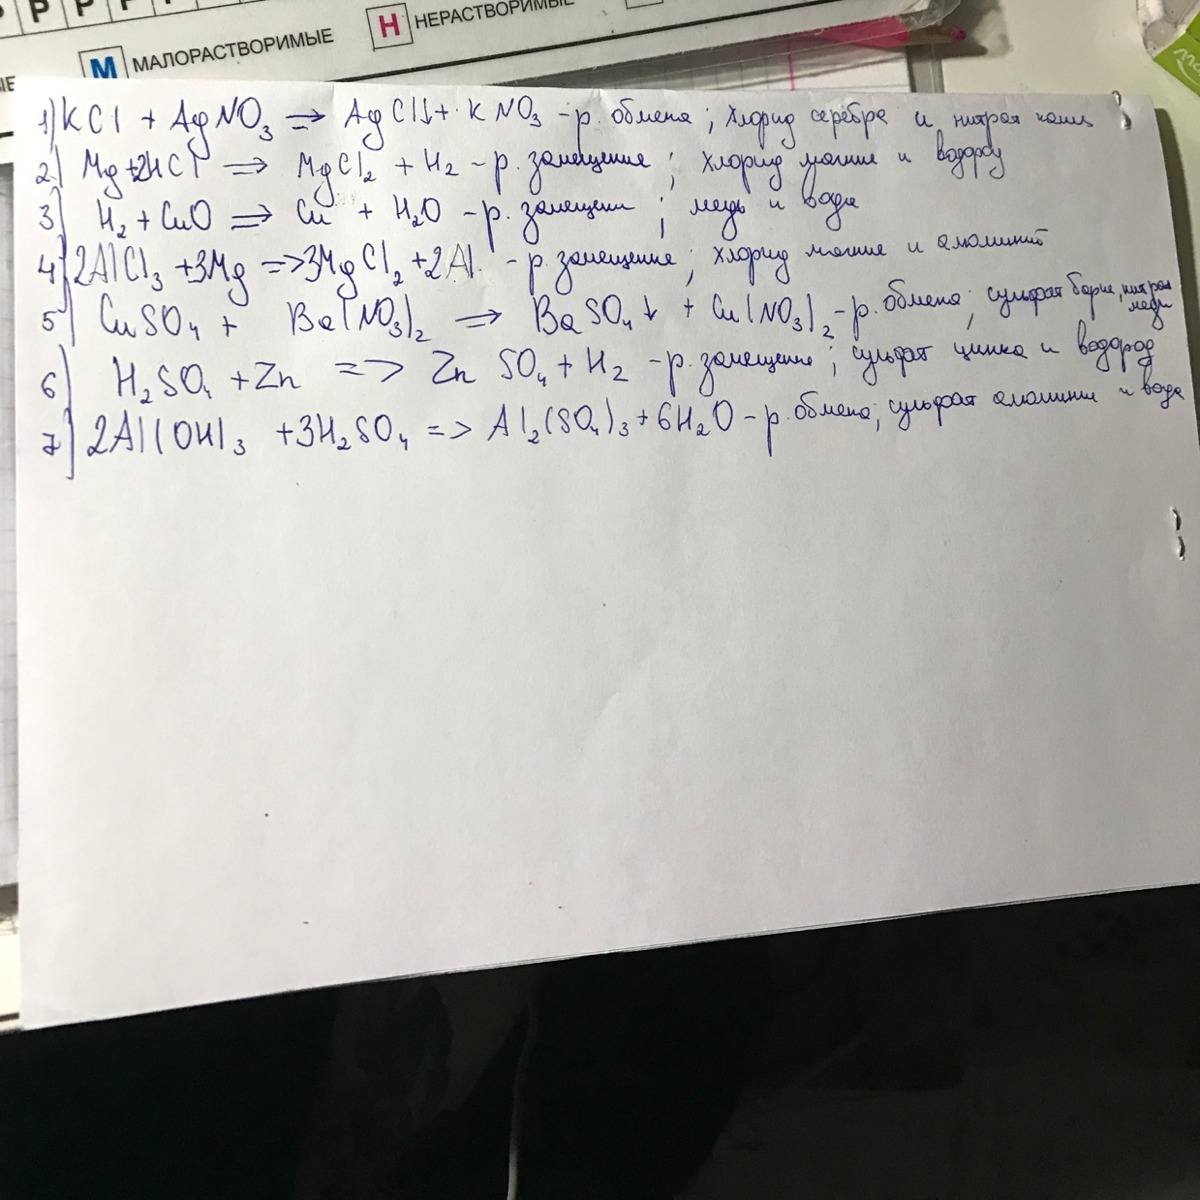 Р Р Р
М МАЛОРАСТВОРИМЫЕ Н НЕРАСТВОРИМЫЕ
1) KCl + AgNO₃ => AgCl↓ + KNO₃ - р. обмена ; хлорид серебра и нитрат калия
2) Mg + 2HCl => MgCl₂ + H₂ - р. замещение ; хлорид магние и водород
3) H₂ + CuO => Cu + H₂O - р. замещени ; медь и вода
4) 2AlCl₃ + 3Mg => 3MgCl₂ + 2Al - р. замещение ; хлорид магние и алюминий
5) CuSO₄ + Ba(NO₃)₂ => BaSO₄↓ + Cu(NO₃)₂ - р. обмена ; сульфат барие, нитрат меди
6) H₂SO₄ + Zn => ZnSO₄ + H₂ - р. замещение ; сульфат цинка и водород
7) 2Al(OH)₃ + 3H₂SO₄ => Al₂(SO₄)₃ + 6H₂O - р. обмена ; сульфат алюмини и вода